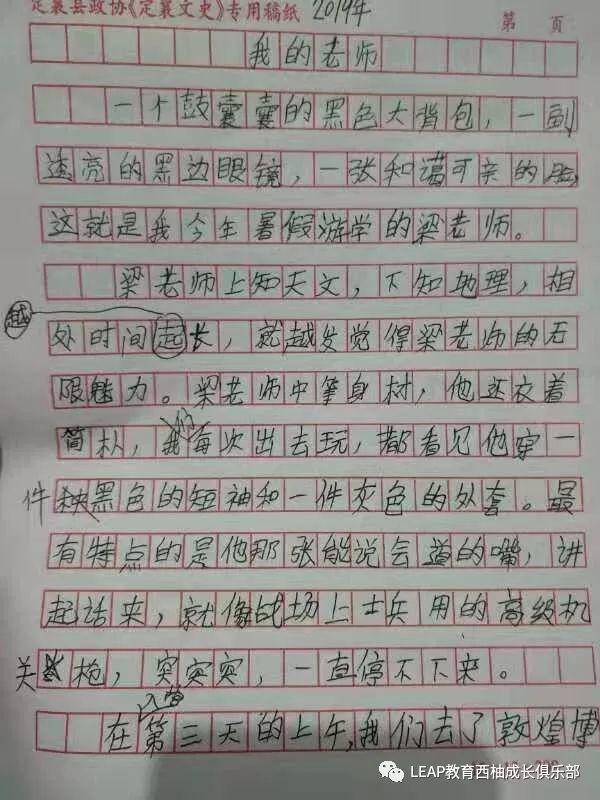 定襄县政协《定襄文史》专用稿纸 2019年 第 页
我的老师
一个鼓囊囊的黑色大背包，一副
透亮的黑边眼镜，一张和蔼可亲的脸，
这就是我今年暑假游学的梁老师。
梁老师上知天文，下知地理，相
越
处时间起长，就越发觉得梁老师的无
限魅力。梁老师中等身材，他还衣着
简朴，我们每次出去玩，都看见他穿一
件黑色的短袖和一件灰色的外套。最
有特点的是他那张能说会道的嘴，讲
起话来，就像战场上士兵用的高级机
关枪，突突突，一直停不下来。
入营
在第三天的上午，我们去了敦煌博
LEAP教育西柚成长俱乐部